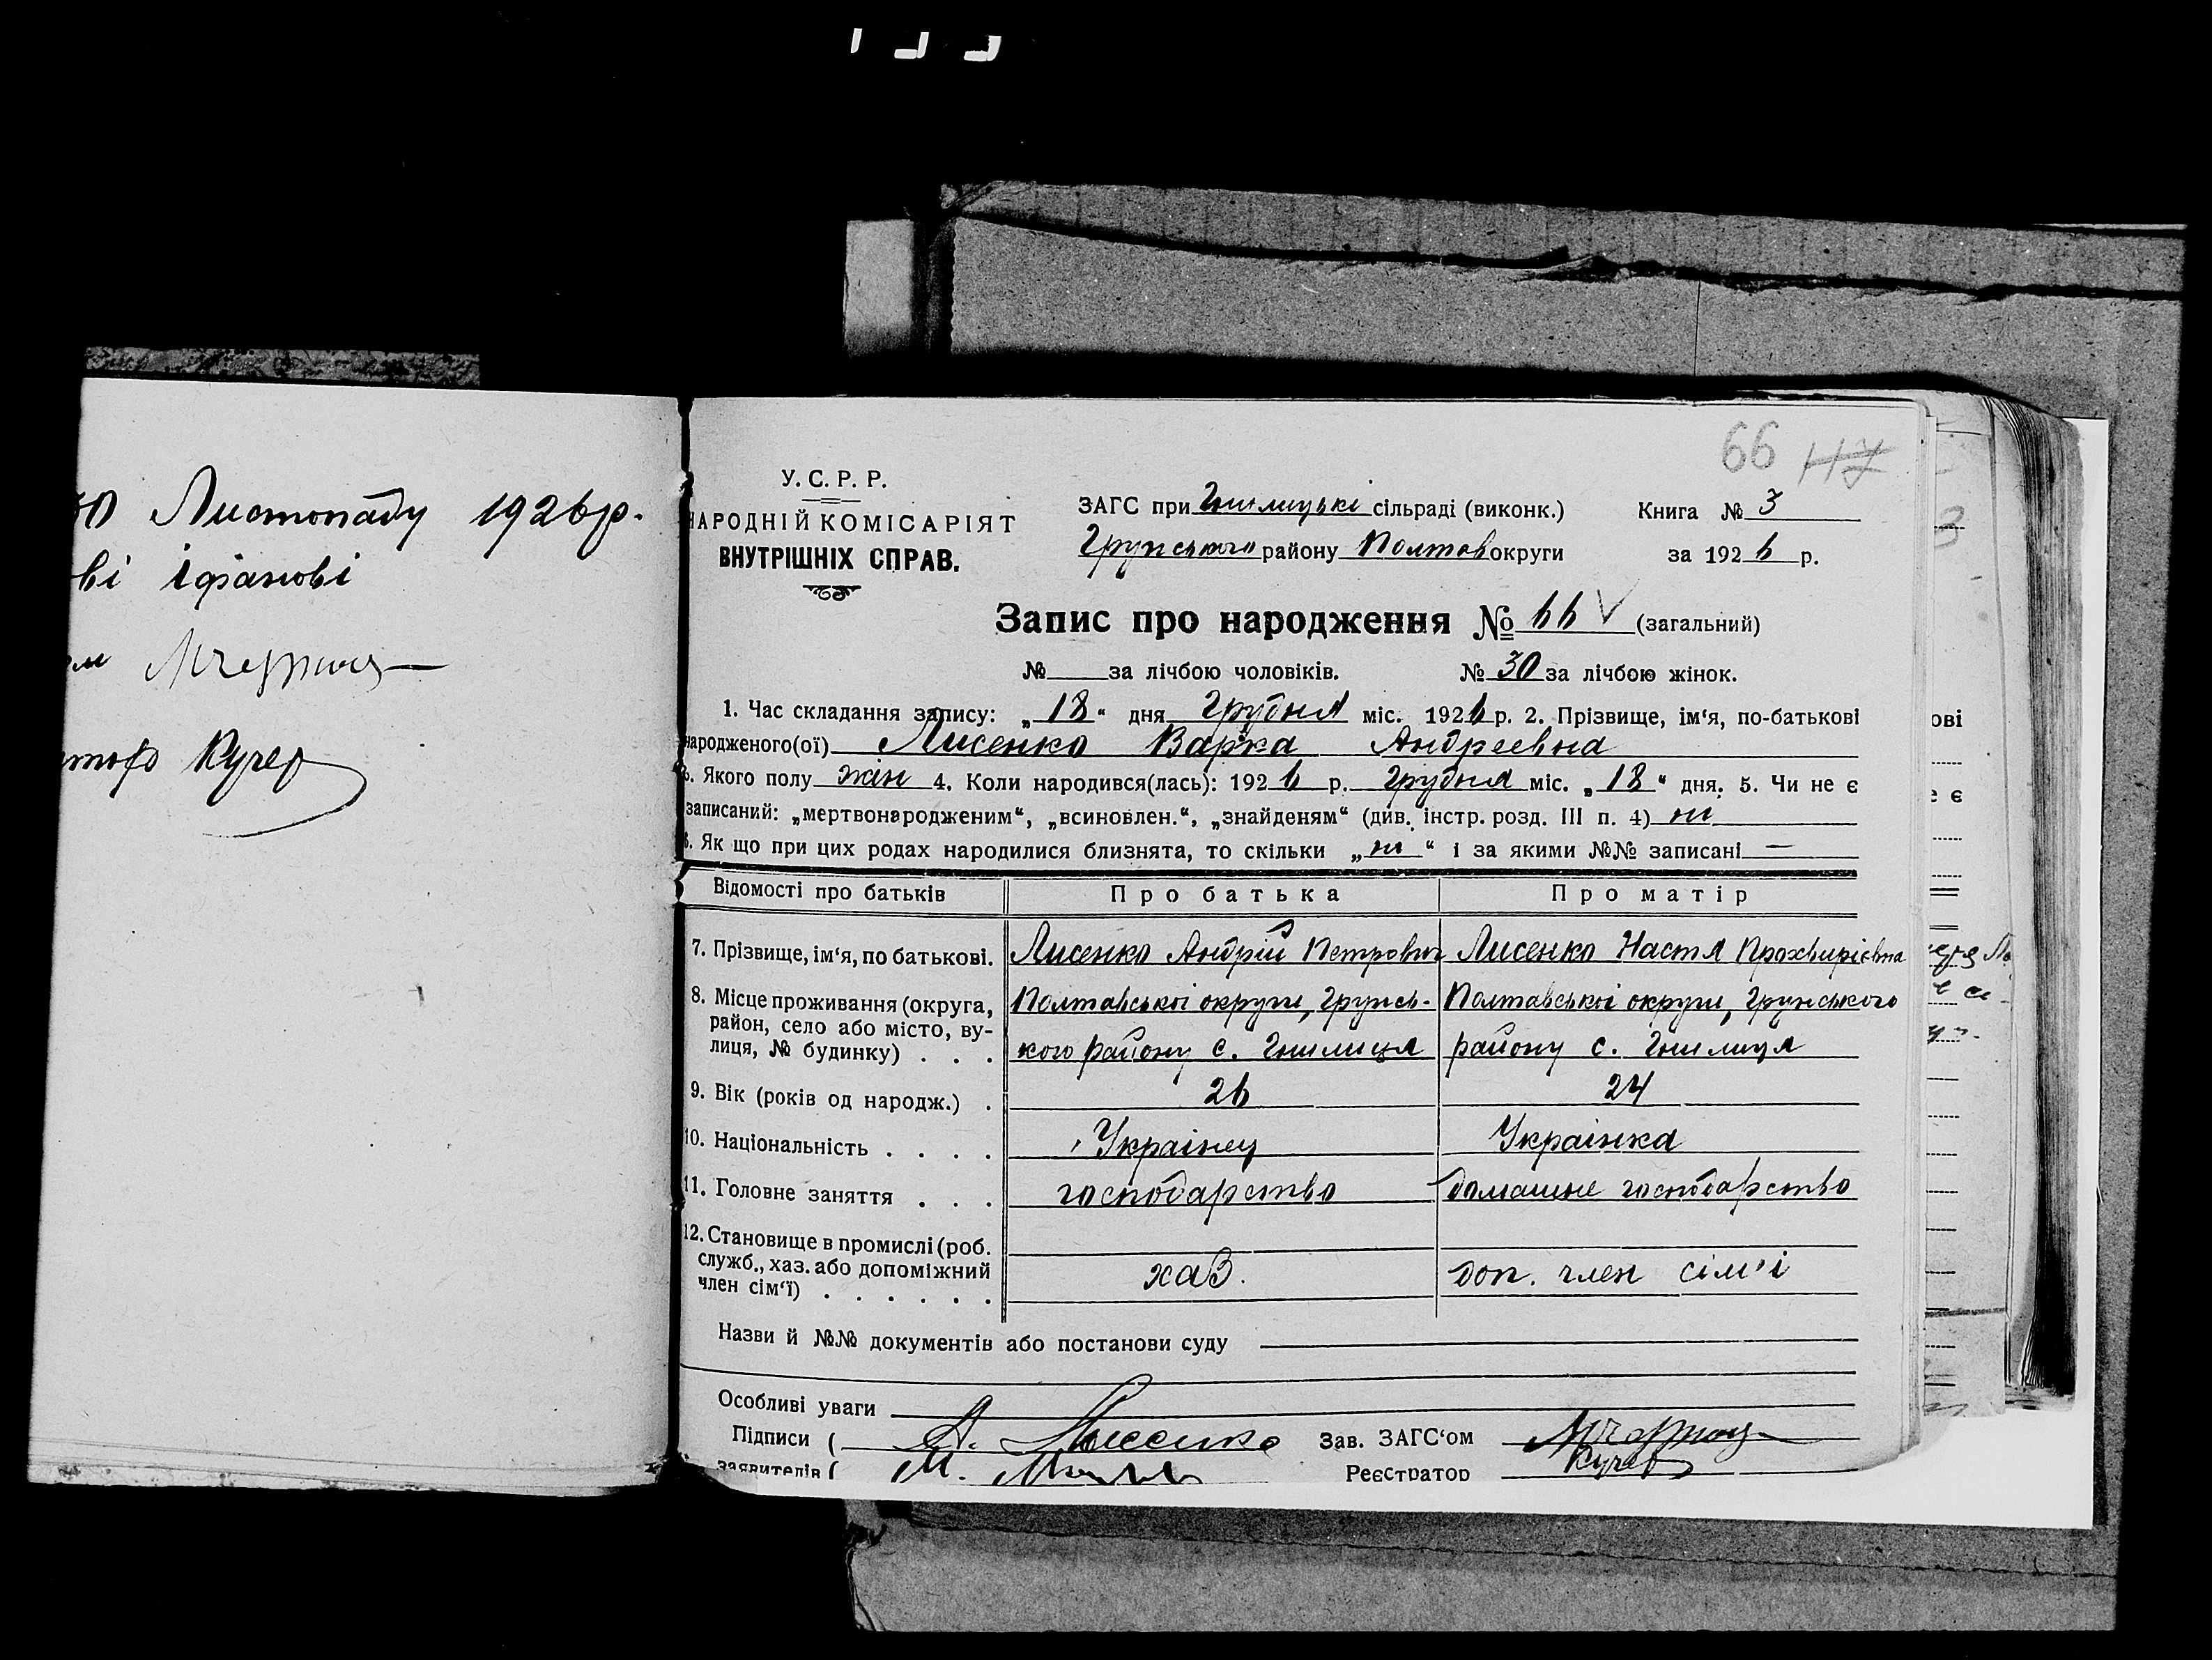 Листопаду 1926 р.
Кучер
66 117
У. С. Р. Р.
НАРОДНІЙ КОМІСАРІЯТ
ВНУТРІШНІХ СПРАВ.
ЗАГС при Гнилицькі сільраді (виконк.)
Грунського району Полтав округи
Книга № 3
за 1926 р.
Запис про народження № 66 (загальний)
№ за лічбою чоловіків. № 30 за лічбою жінок.
1. Час складання запису: „18“ дня Грудня міс. 1926 р. 2. Прізвище, ім‘я, по-батькові
народженого(ої) Лисенко Варка Андреевна
3. Якого полу жін 4. Коли народився(лась): 1926 р. Грудня міс. „18“ дня. 5. Чи не є
записаний: „мертвонародженим“, „всиновлен.“, „знайденям“ (див. інстр. розд. III п. 4) ні
6. Як що при цих родах народилися близнята, то скільки „ні“ і за якими №№ записані —
Відомості про батьків Про батька Про матір
7. Прізвище, ім‘я, по батькові. Лисенко Андрій Петрович Лисенко Настя Прохвирієвна
8. Місце проживання (округа, Полтавської округи, Грунсь- Полтавської округи, Грунського
район, село або місто, ву-
лиця, № будинку) . . . кого району с. Гнилиця району с. Гнилиця
9. Вік (років од народж.) . 26 24
10. Національність . . . . Українец Українка
11. Головне заняття . . . господарство домашне господарство
12. Становище в промислі (роб.
служб., хаз. або допоміжний хаз. доп. член сім'ї
член сім‘ї) . . . . . .
Назви й №№ документів або постанови суду
Особливі уваги
Підписи ( А. Лисенко Зав. ЗАГС‘ом
заявителів ( М. Реєстратор Кучер